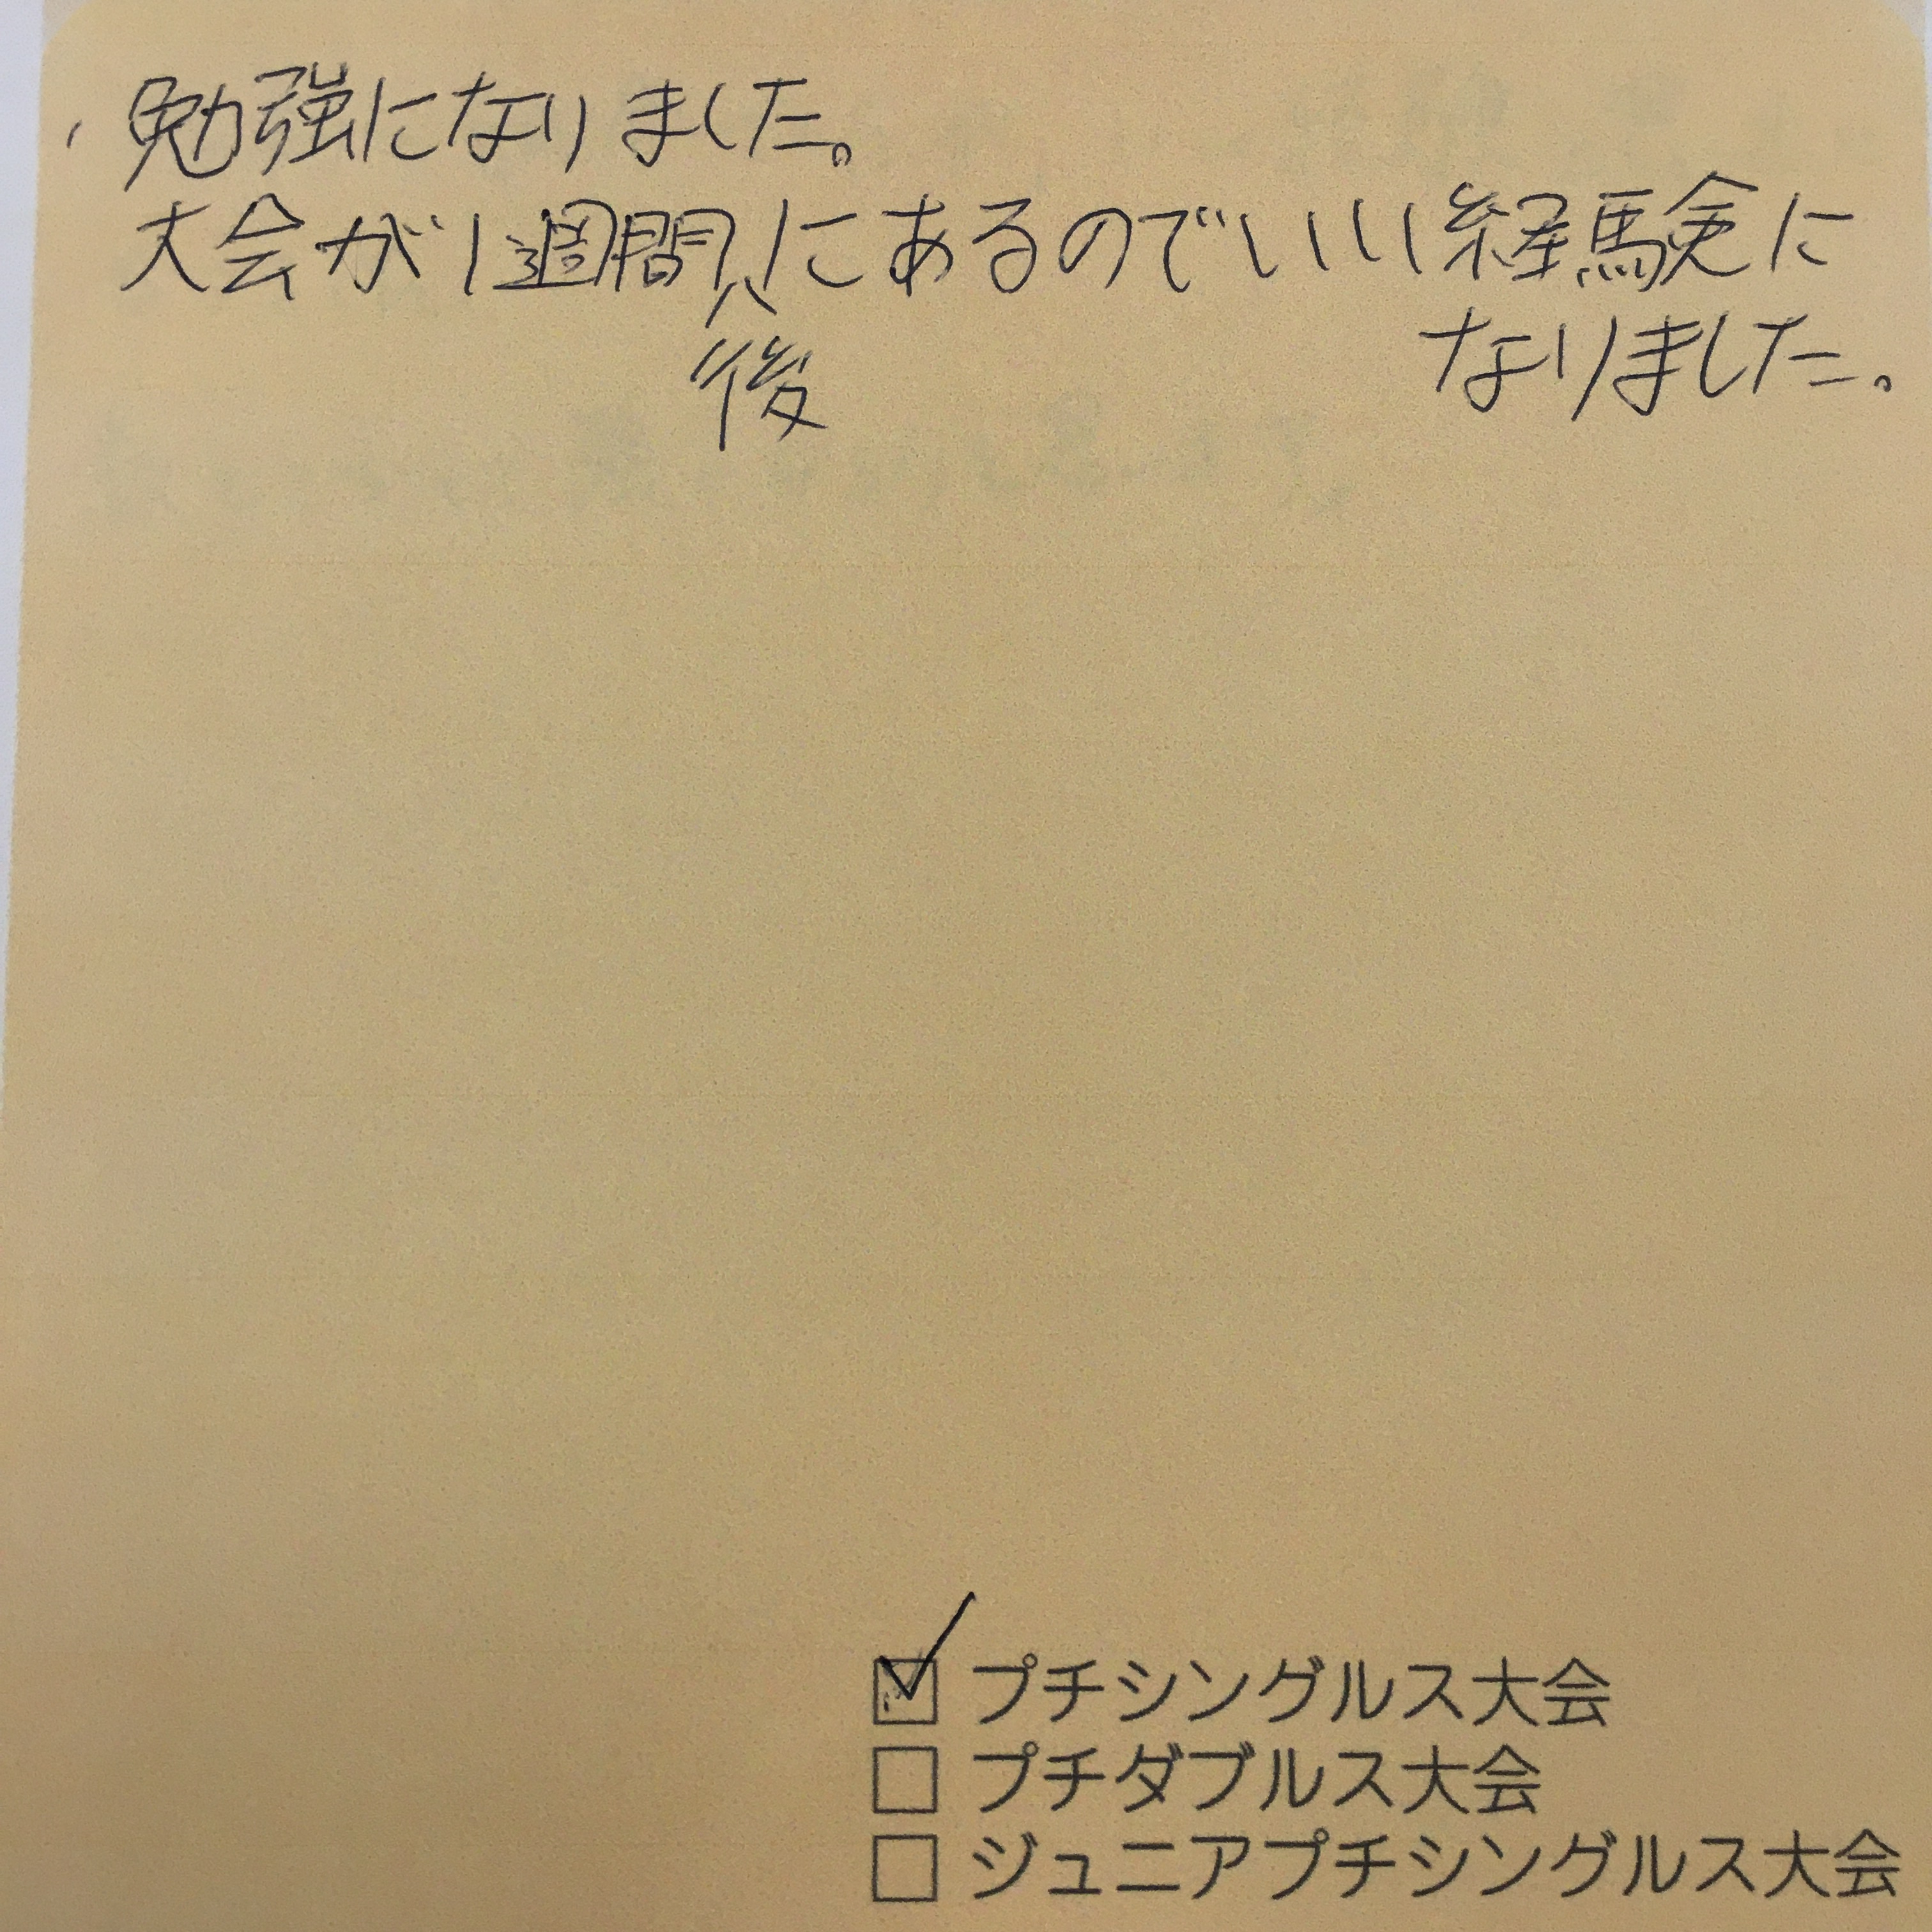 勉強になりました。
大会が1週間後にあるのでいい経験に
なりました。
☑ プチシングルス大会
☐ プチダブルス大会
☐ ジュニアプチシングルス大会